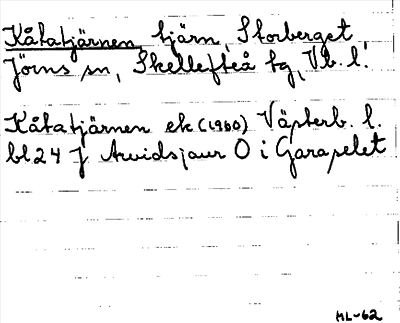 Kåtatjärnen, tjärn, Storberget,
Jörns sn, Skellefteå tg, Vb. l.
Kåtatjärnen ek (1960) Västerb. l.
bl 24 J Arvidsjaur O i Garapelet
ML-62